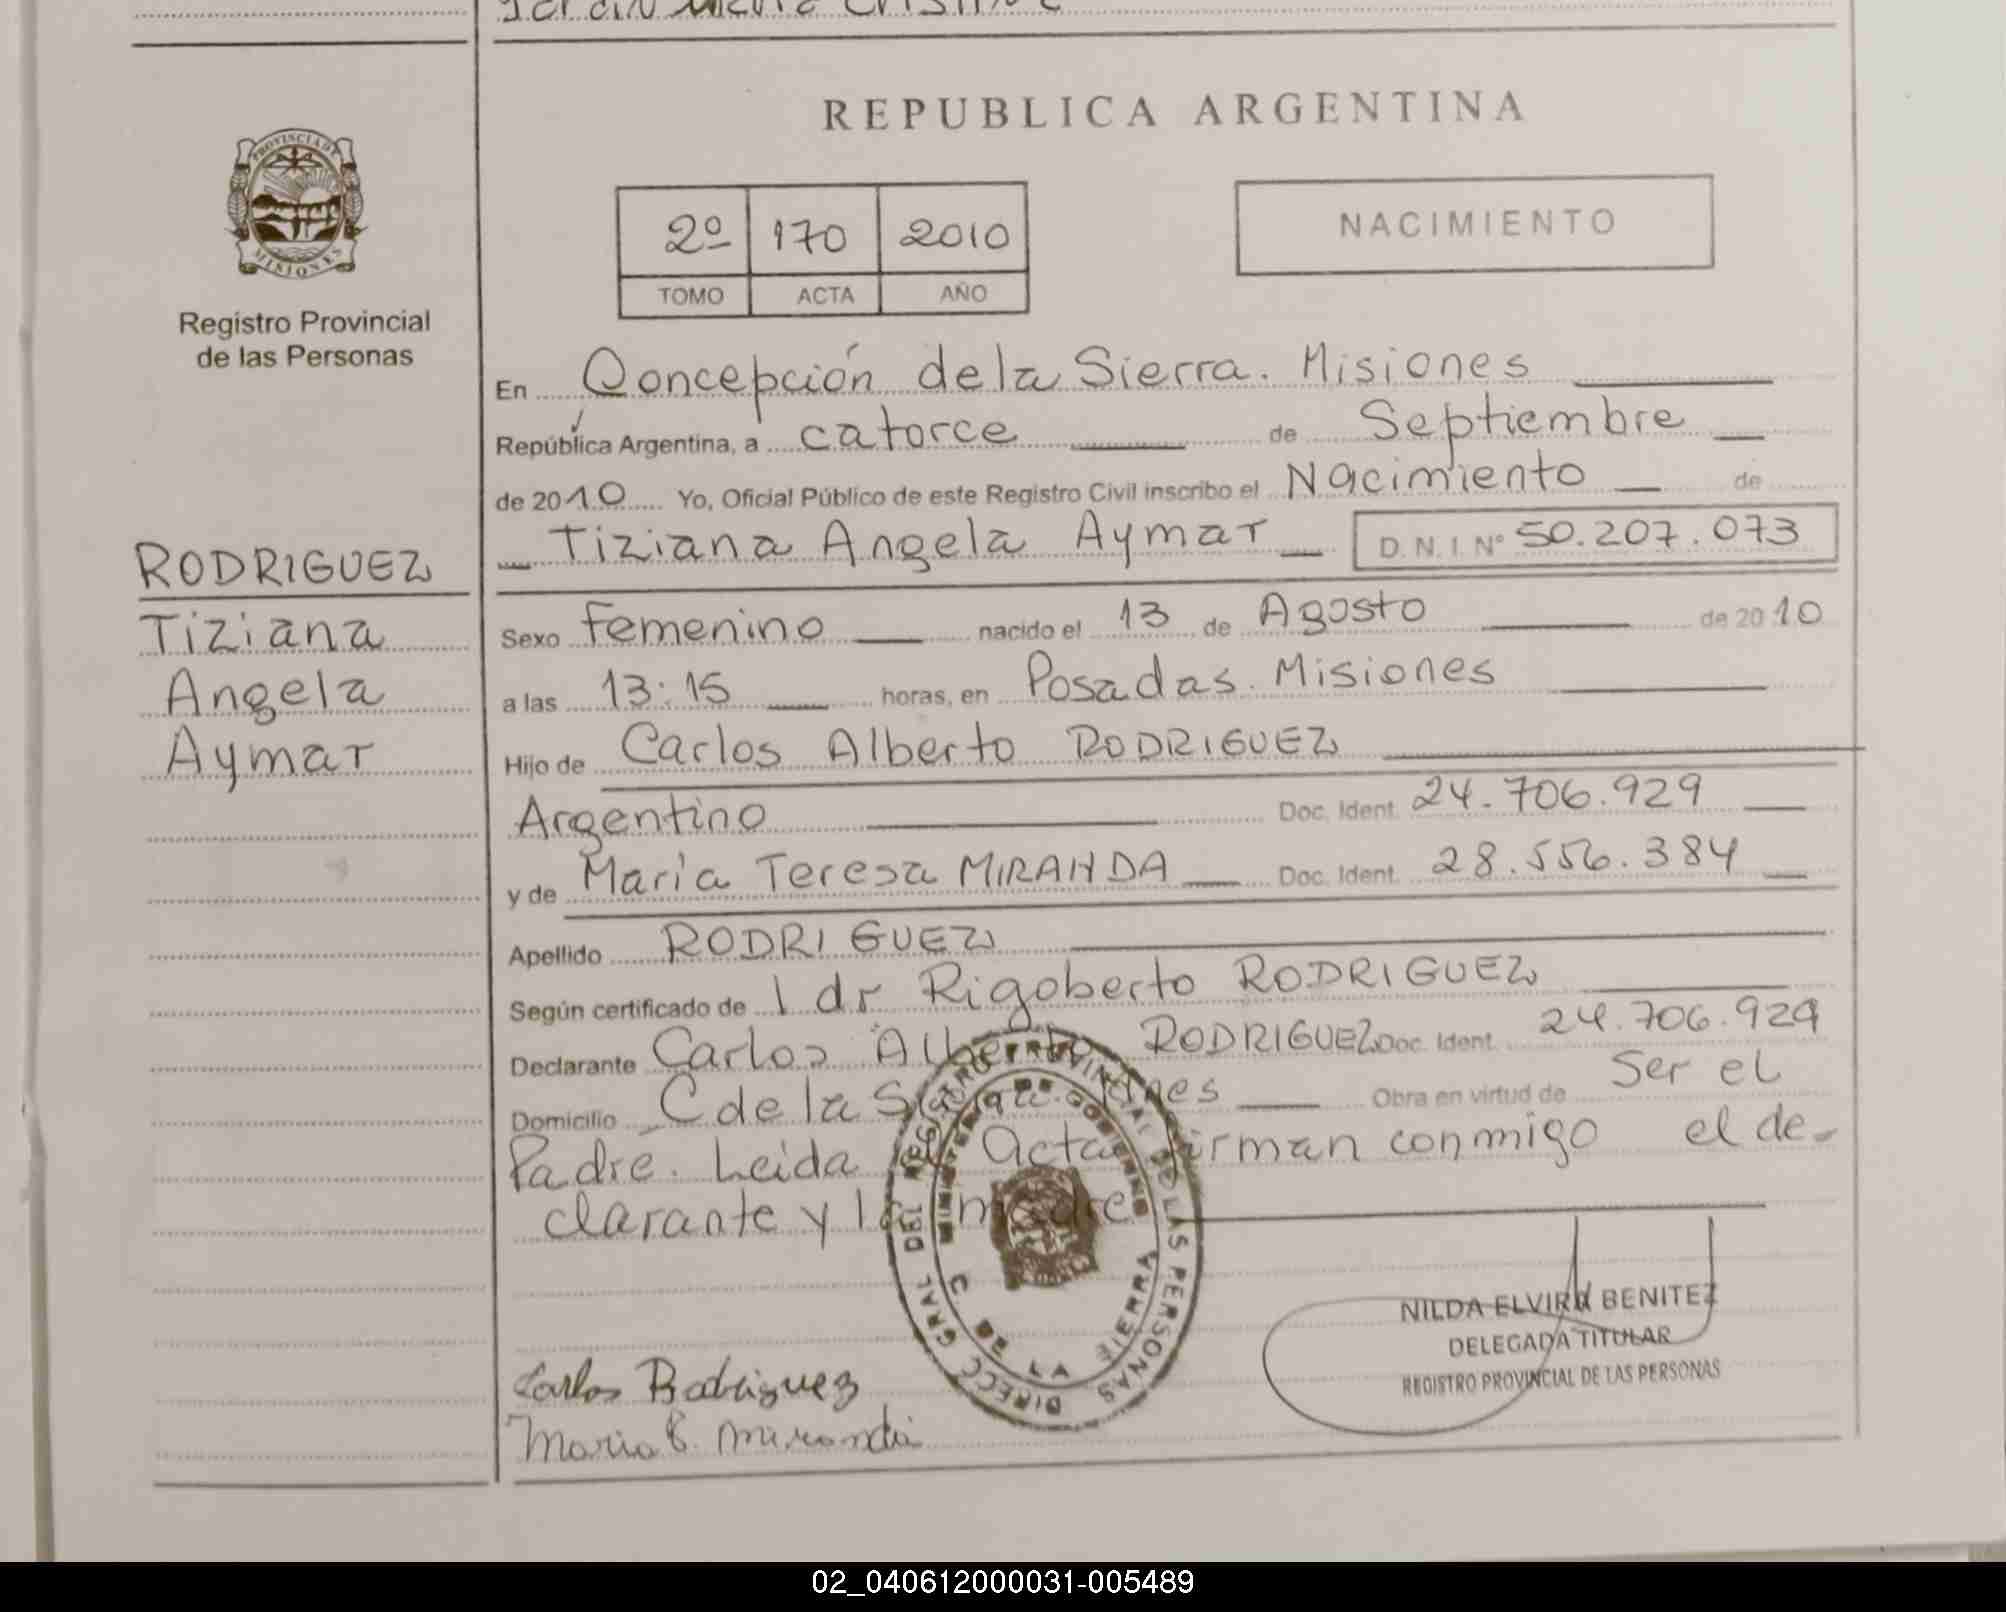 REPUBLICA ARGENTINA
PROVINCIA DE
MISIONES
Registro Provincial
de las Personas
2º 170 2010
TOMO ACTA AÑO
NACIMIENTO
En Concepción de la Sierra. Misiones
República Argentina, a catorce de Septiembre
de 2010 Yo, Oficial Público de este Registro Civil inscribo el Nacimiento de
Tiziana Angela Aymar D.N.I. Nº 50.207.073
RODRIGUEZ
Tiziana
Angela
Aymar
Sexo Femenino nacido el 13 de Agosto de 2010
a las 13:15 horas, en Posadas. Misiones
Hijo de Carlos Alberto RODRIGUEZ
Argentino Doc. Ident. 24.706.929
y de María Teresa MIRANDA Doc. Ident. 28.556.384
Apellido RODRIGUEZ
Según certificado de l dr Rigoberto RODRIGUEZ
Declarante Carlos Alberto RODRIGUEZ Doc. Ident. 24.706.929
Domicilio C de la Sierra. Mnes Obra en virtud de Ser el
Padre. Leida el Acta firman conmigo el de-
clarante y la madre
DIRECC GRAL DEL REGISTRO PROVINCIAL DE LAS PERSONAS
MINISTERIO DE GOBIERNO
C DE LA SIERRA
NILDA ELVIRA BENITEZ
DELEGADA TITULAR
REGISTRO PROVINCIAL DE LAS PERSONAS
Carlos Rodriguez
Maria T. Miranda
02_040612000031-005489